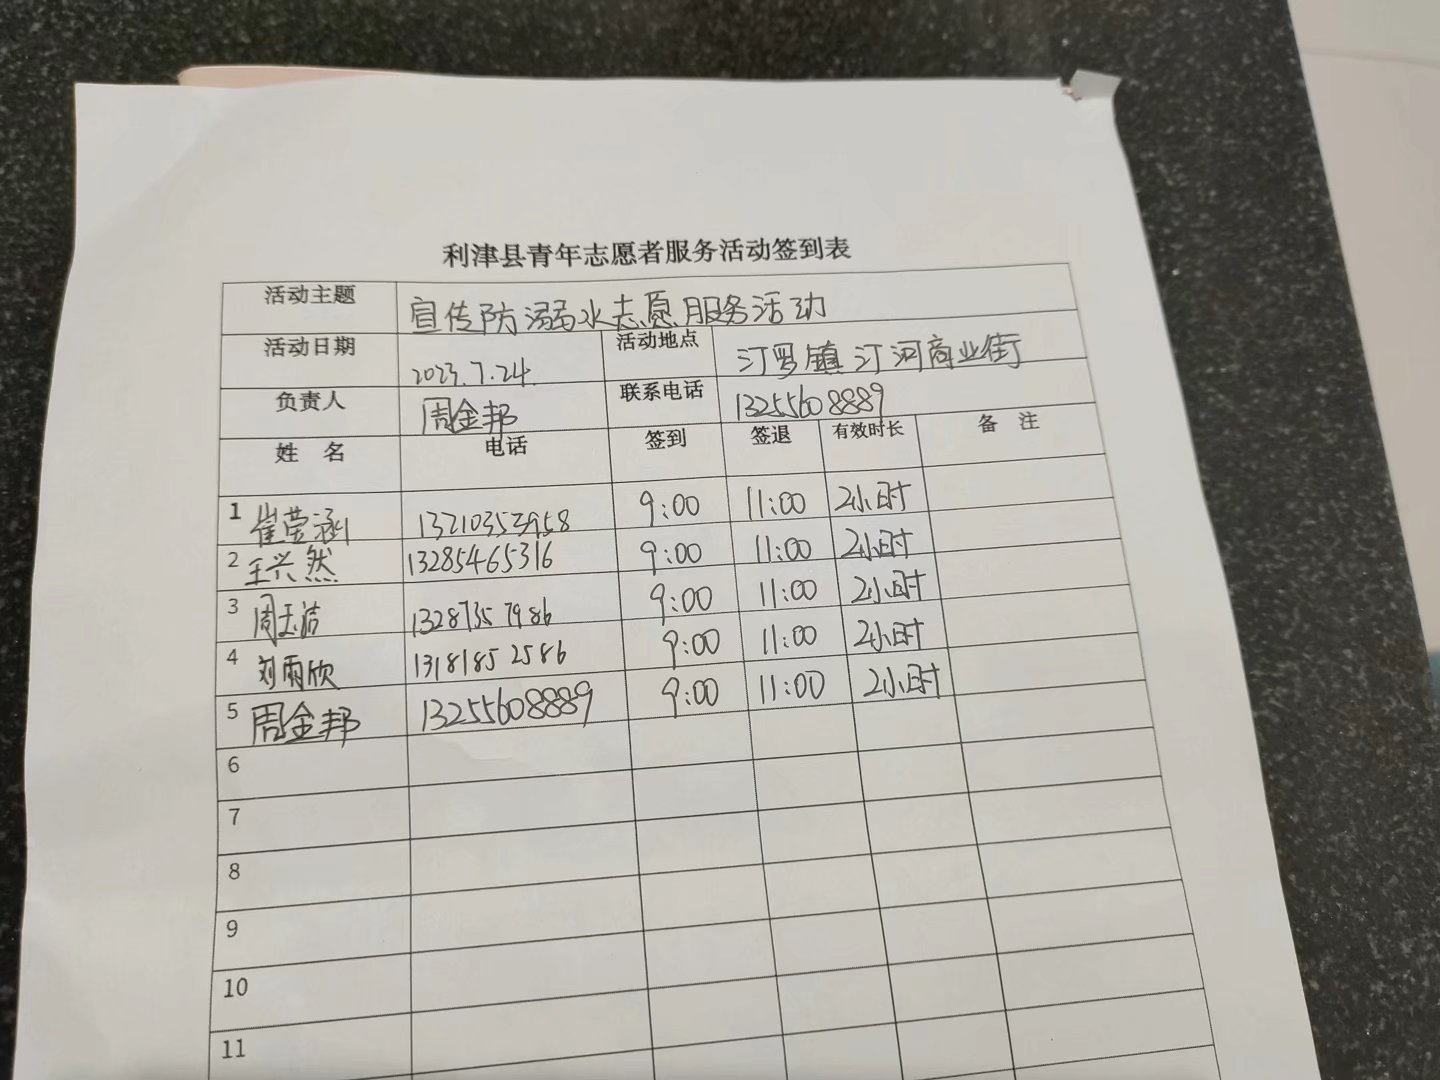 利津县青年志愿者服务活动签到表
活动主题 宣传防溺水志愿服务活动
活动日期 2023.7.24. 活动地点 汀罗镇汀河商业街
负责人 周金邦 联系电话 13255608889
姓 名 电话 签到 签退 有效时长 备 注
1 崔莹涵 13210353958 9:00 11:00 2小时
2 王兴然 13285465316 9:00 11:00 2小时
3 周玉洁 13287357986 9:00 11:00 2小时
4 刘雨欣 13181852586 9:00 11:00 2小时
5 周金邦 13255608889 9:00 11:00 2小时
6
7
8
9
10
11